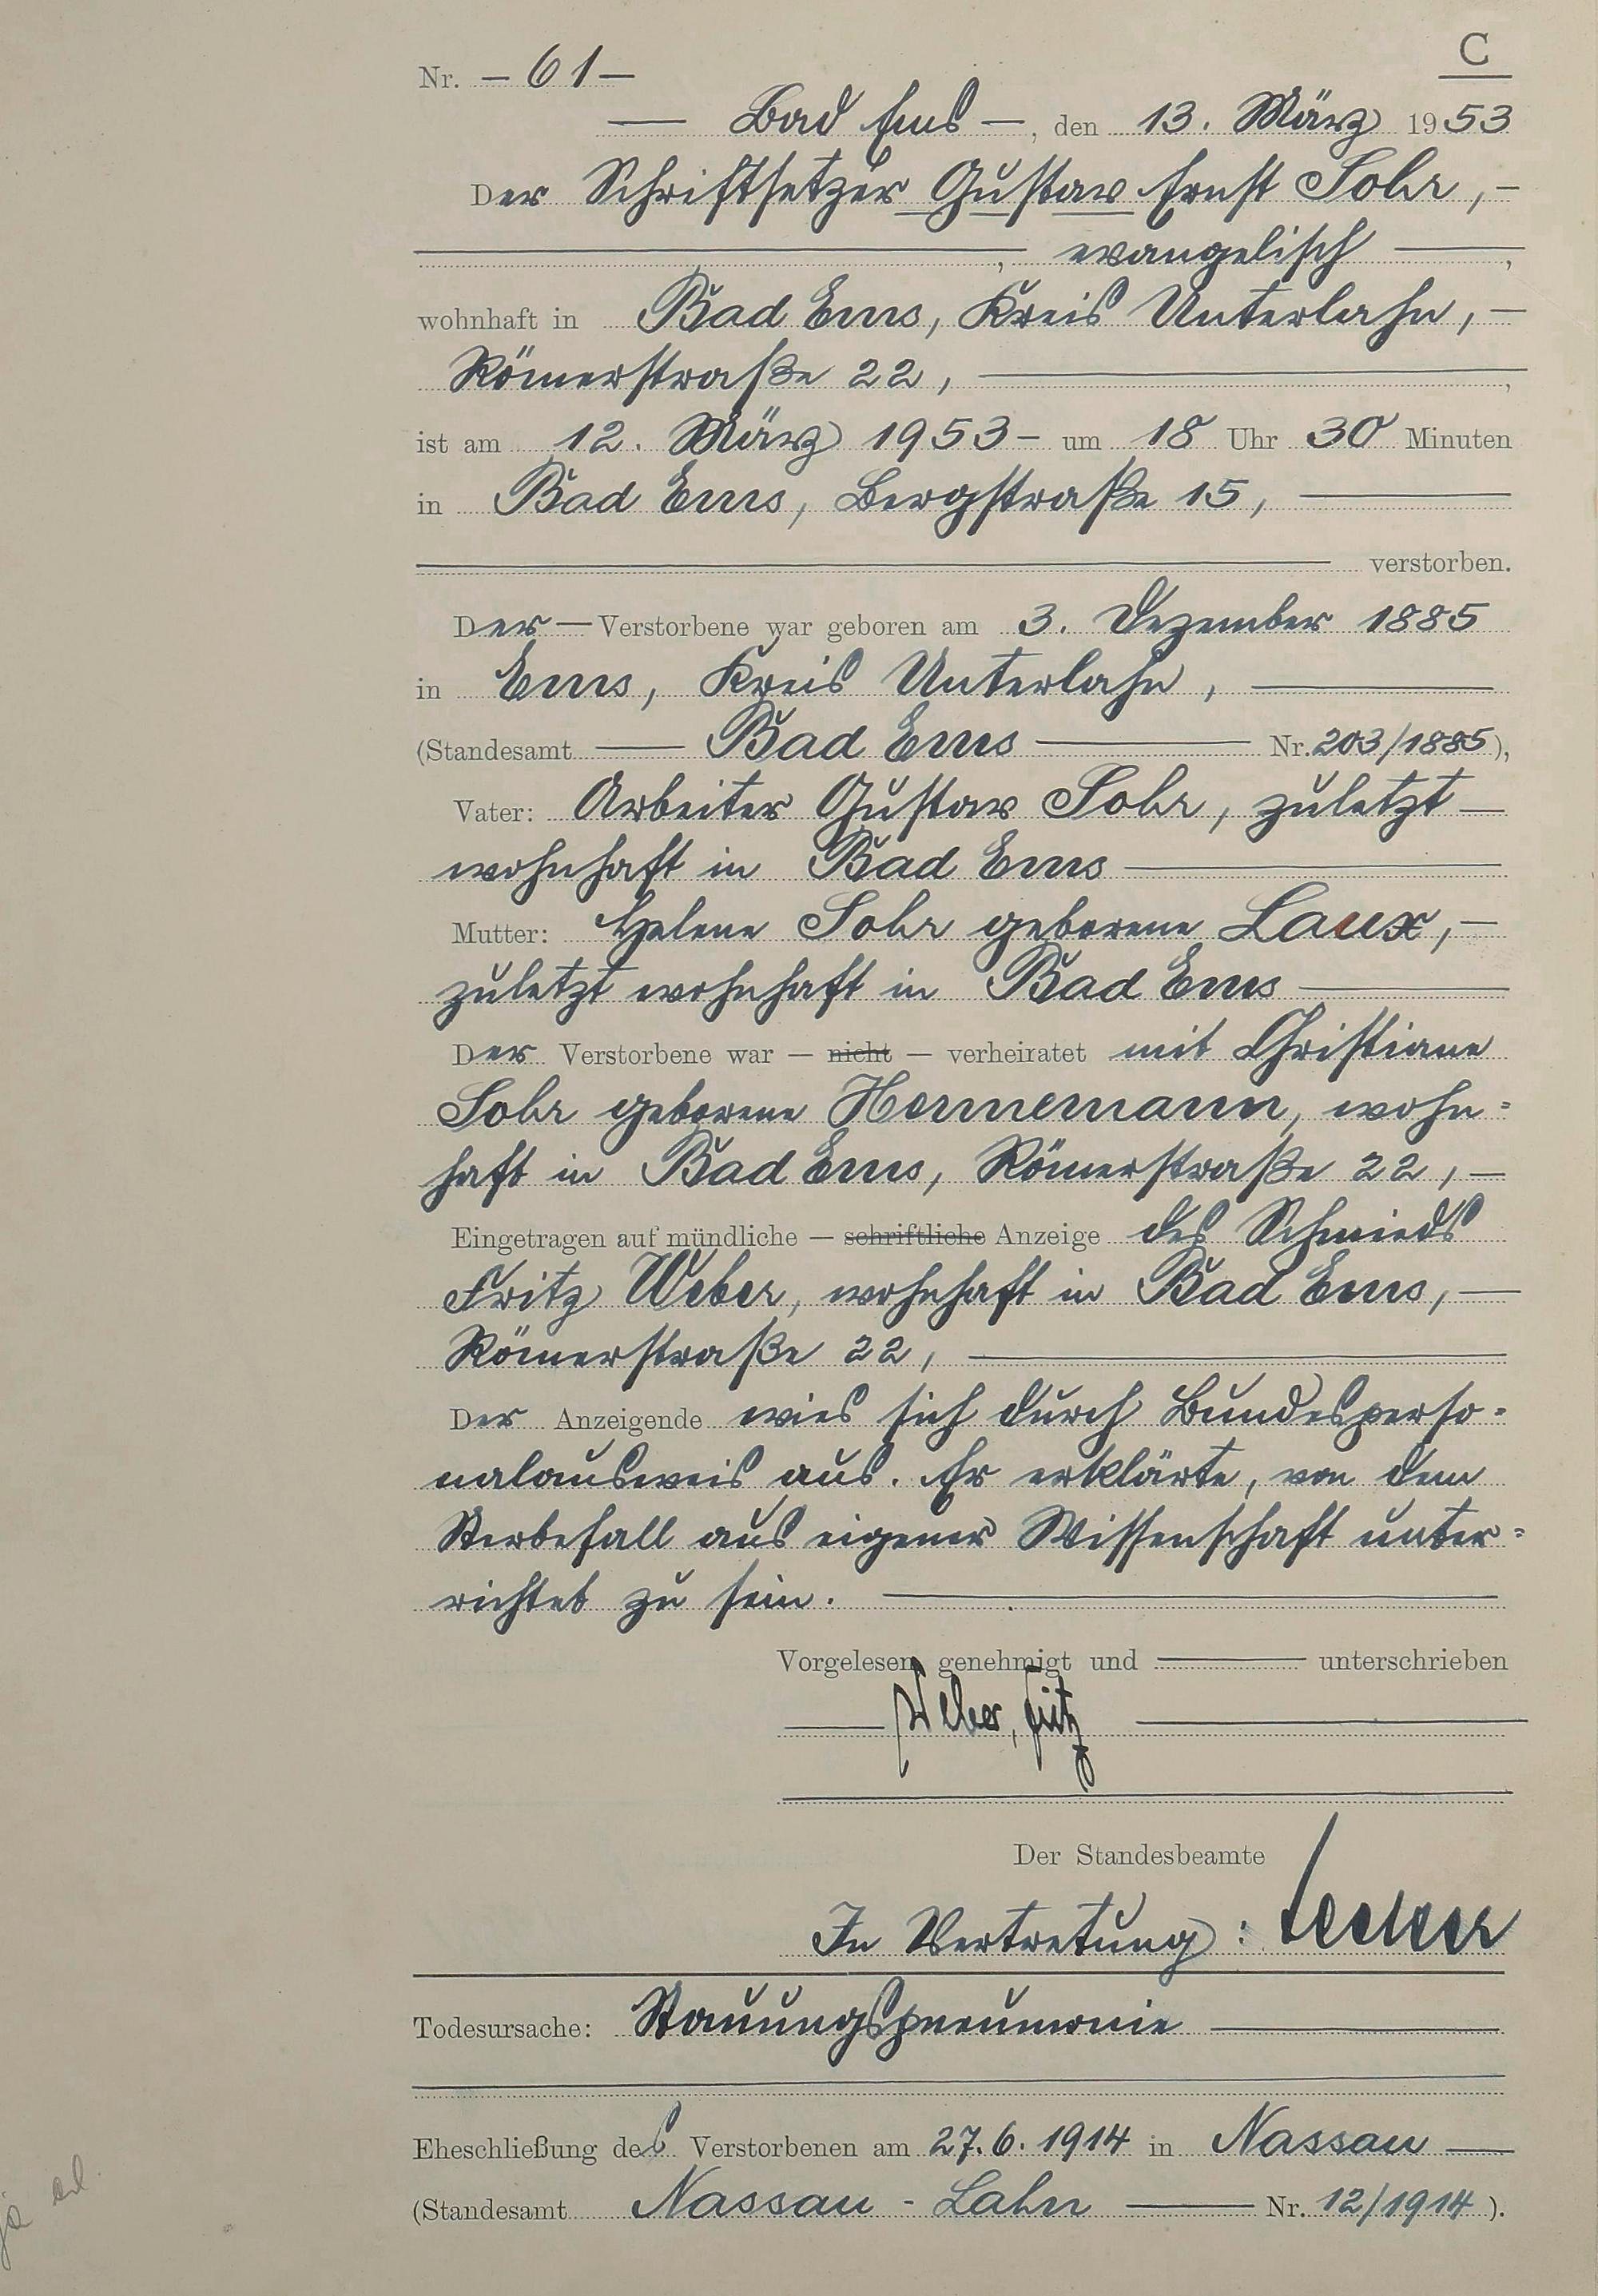 C
Nr. – 61 –
— Bad Ems –, den 13. März 1953
Der Schriftsetzer Gustav Ernst Sohr, –
, evangelisch —,
wohnhaft in Bad Ems, Kreis Unterlahn, –
Römerstraße 22, —,
ist am 12. März 1953 – um 18 Uhr 30 Minuten
in Bad Ems, Bergstraße 15, —
verstorben.
Der – Verstorbene war geboren am 3. Dezember 1885
in Ems, Kreis Unterlahn, —
(Standesamt — Bad Ems — Nr. 203/1885),
Vater: Arbeiter Gustav Sohr, zuletzt –
wohnhaft in Bad Ems —
Mutter: Helene Sohr geborene Laux, –
zuletzt wohnhaft in Bad Ems —
Der Verstorbene war — nicht — verheiratet mit Christiane
Sohr geborene Hornemann, wohn=
haft in Bad Ems, Römerstraße 22, –
Eingetragen auf mündliche — schriftliche Anzeige des Schmieds
Fritz Weber, wohnhaft in Bad Ems, –
Römerstraße 22, —
Der Anzeigende wies sich durch Bundesperso=
nalausweis aus. Er erklärte, von dem
Sterbefall aus eigener Wissenschaft unter=
richtet zu sein. —
Vorgelesen, genehmigt und — unterschrieben
— Weber, Fritz —
Der Standesbeamte
In Vertretung:
Todesursache: Stauungspneumonie —
Eheschließung des Verstorbenen am 27.6.1914 in Nassau —
(Standesamt Nassau - Lahn — Nr. 12/1914).